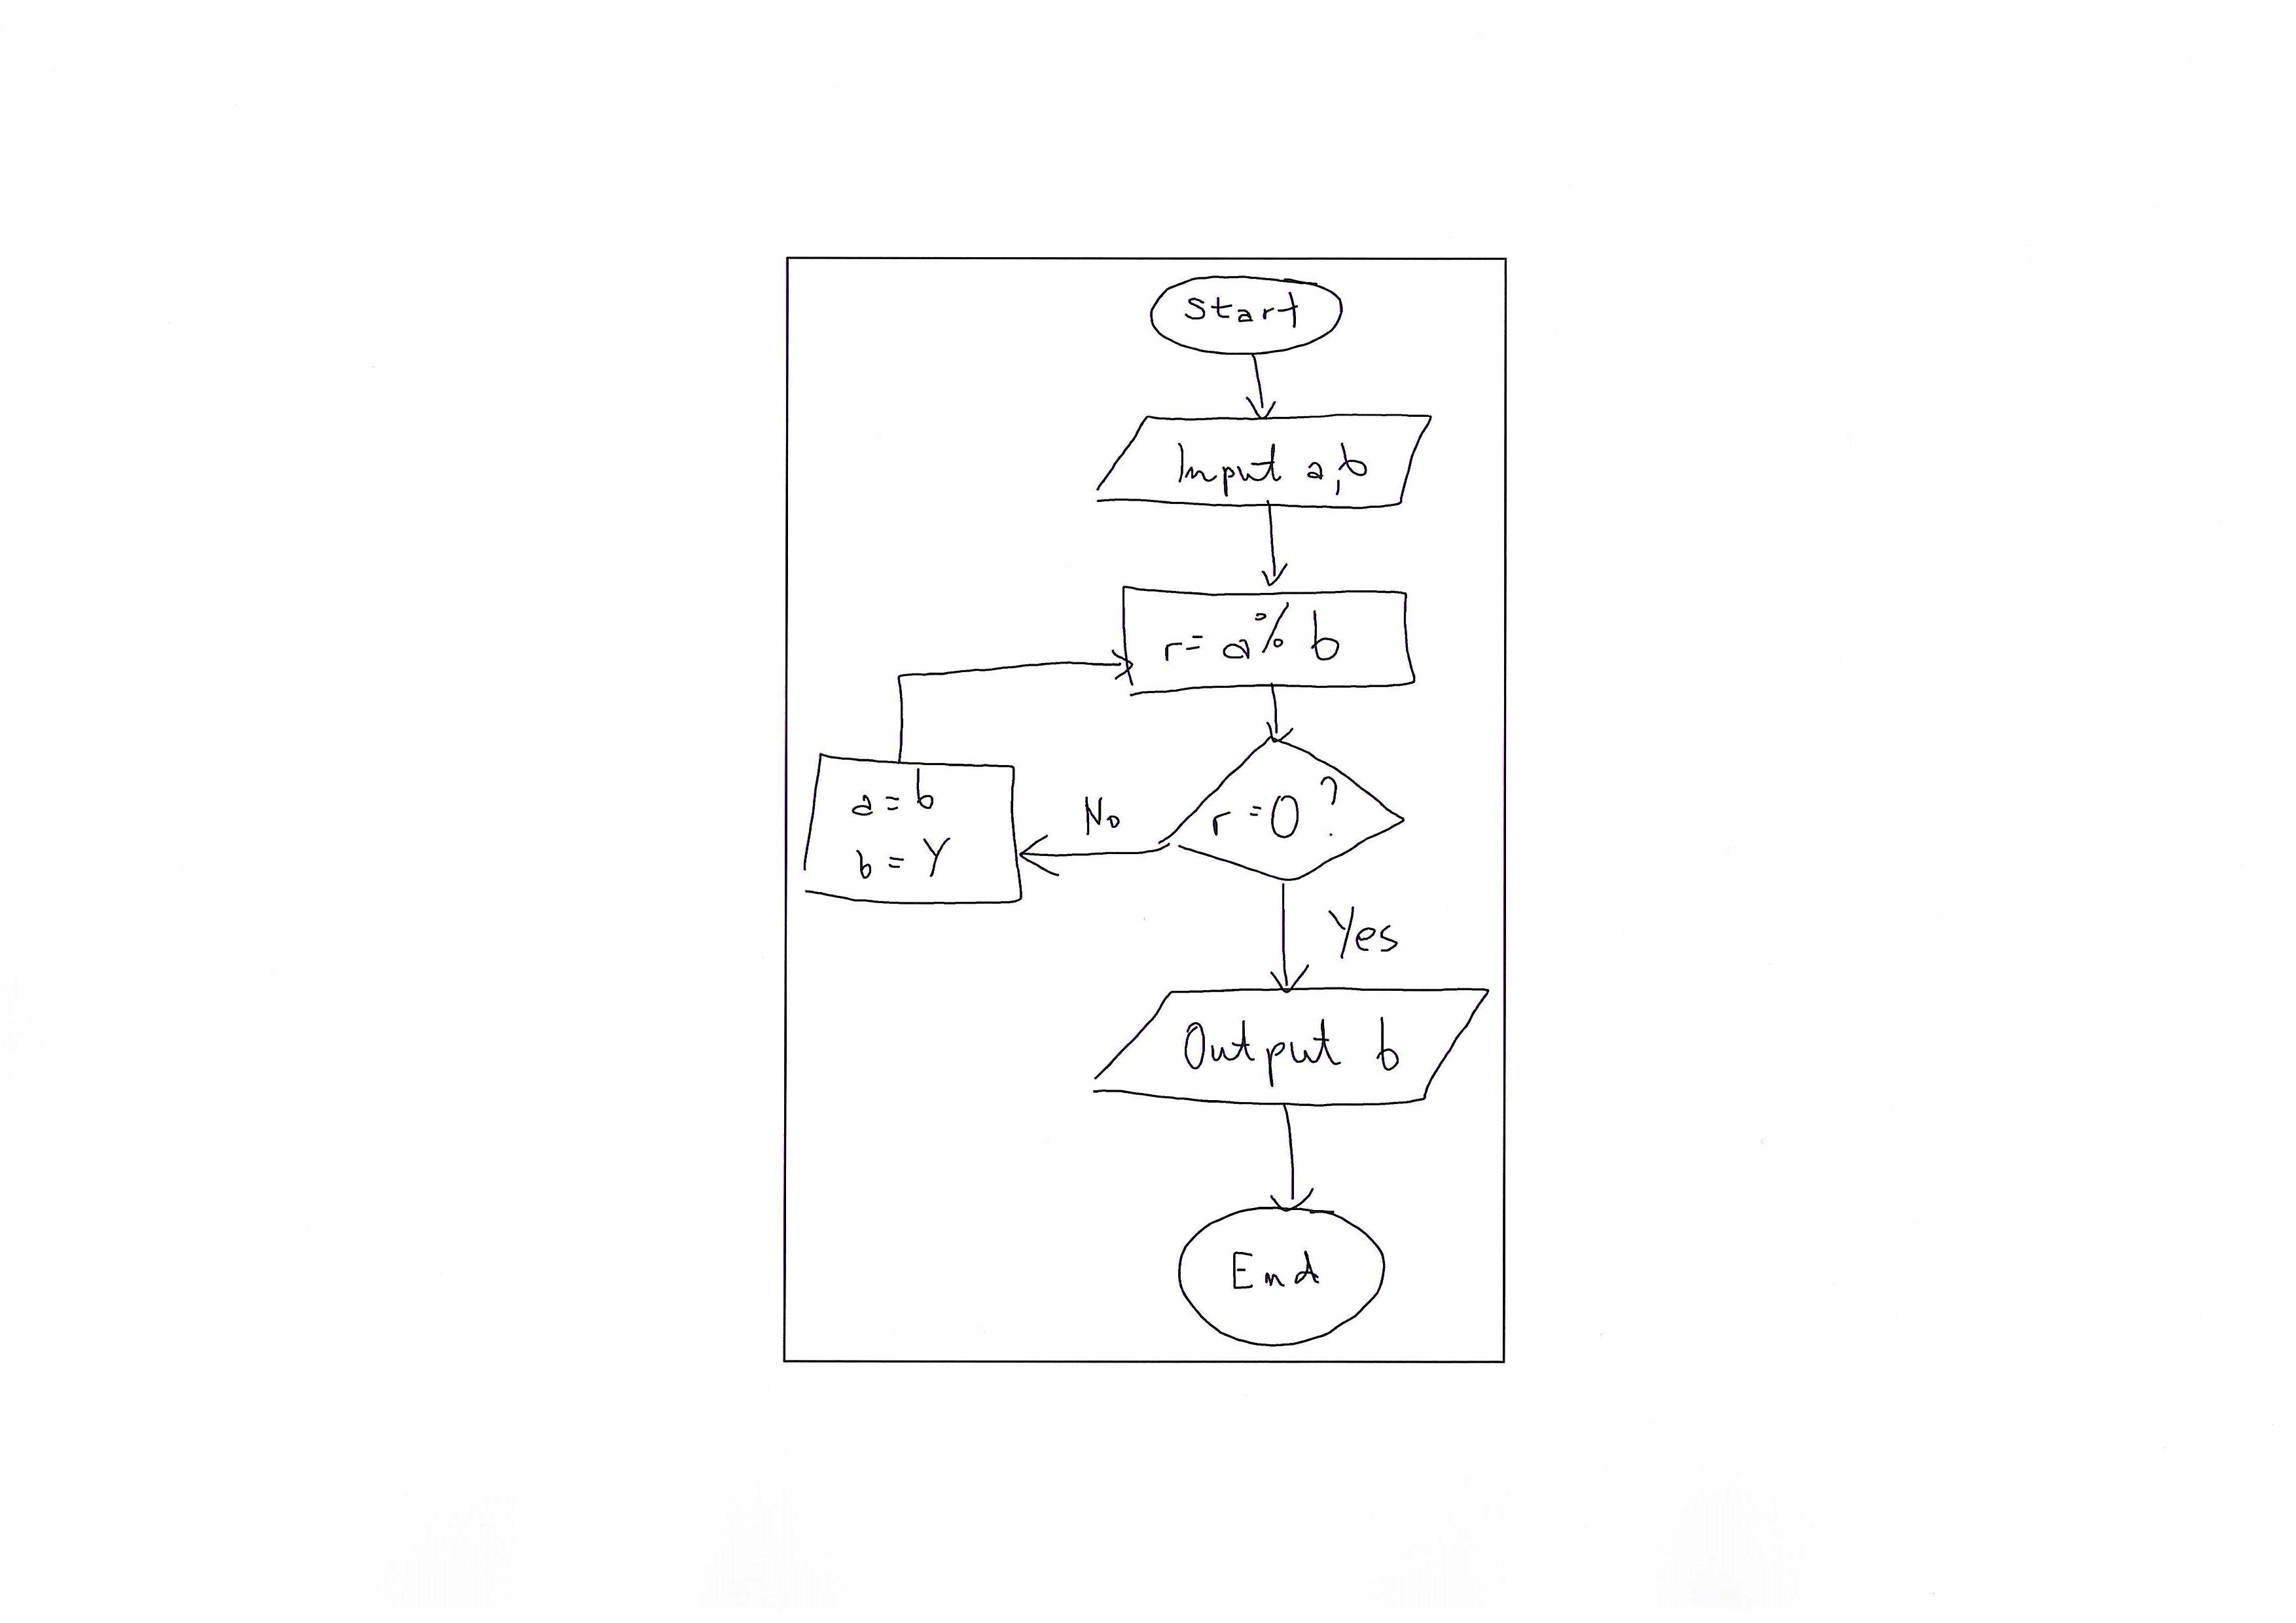 Start
Input a,b
r= a% b
r=0?
No
a=b
b=Y
Yes
Output b
End